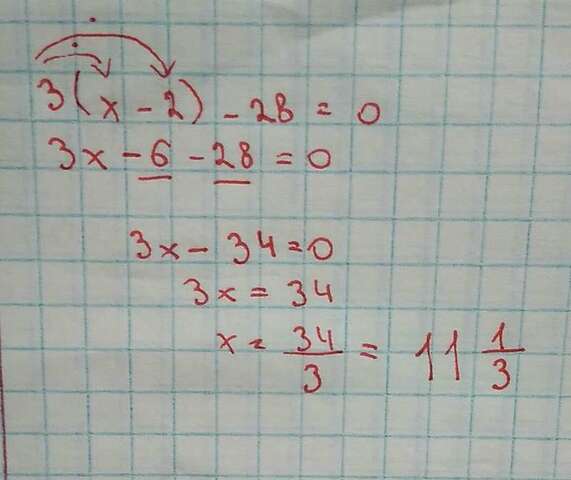 3(x - 2) - 28 = 0
3x - 6 - 28 = 0
3x - 34 = 0
3x = 34
x = 34/3 = 11 1/3